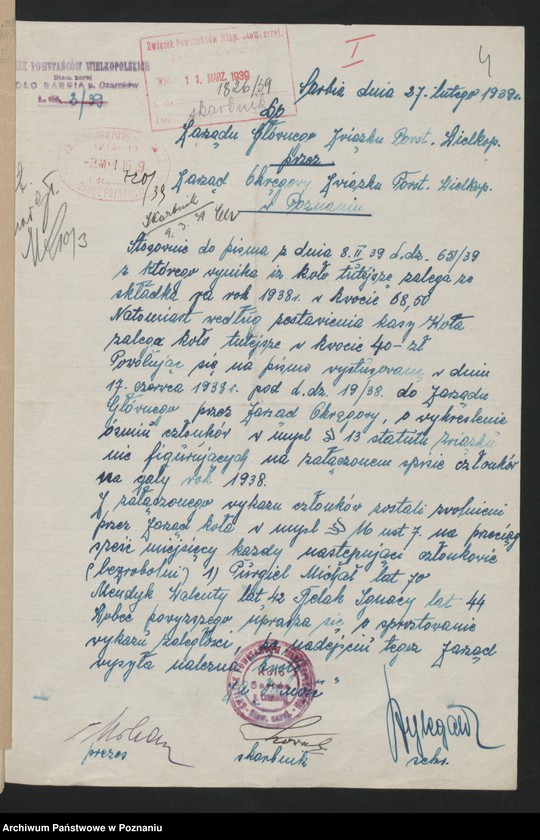 ZEK POWSTAŃCÓW WIELKOPOLSKICH
Stow. zarej
OŁO SARBIA p. Czarnków
L. dz. 3/39
Związek Powstańców Wlkp. Stow. zarej.
11. MARZ. 1939
1826/39
skarbnik
I
4
Sarbia dnia 27. lutego 1939 r.
Do
Zarządu Głównego Związku Powst. Wielkop.
przez
Zarząd Okręgowy Związku Powst. Wielkop.
w Poznaniu
420/39
Skarbnik
9. 3. 39
Stosownie do pisma z dnia 8. II 39 L. dz. 651/39
z którego wynika iż koło tutejsze zalega ze
składką za rok 1938 r. w kwocie 68,50
Natomiast według zestawienia kasy Koła
zalega koło tutejsze w kwocie 40 - zł
Powołując się na pismo wystosowane w dniu
17. czerwca 1938 r. pod L. dz. 19/38. do Zarządu
Głównego przez Zarząd Okręgowy, o wykreślenie
ośmiu członków w myśl § 13 statutu związku
nie figurujących na załączonem spisie członków
na cały rok 1938.
Z załączonego wykazu członków zostali zwolnieni
przez Zarząd koła w myśl § 16 ust 7. na przeciąg
sześć miejsięcy każdy następujący członkowie
(bezrobotni) 1) Purgiel Michał lat 70
Mendyk Walenty lat 42 Felak Ignacy lat 44
Wobec powyższego uprasza się o sprostowanie
wykazu zaległości, po nadejściu tegoż Zarząd
wysyła należną kwotę
KOŁO
prezes
skarbnik
sekr.
Archiwum Państwowe w Poznaniu